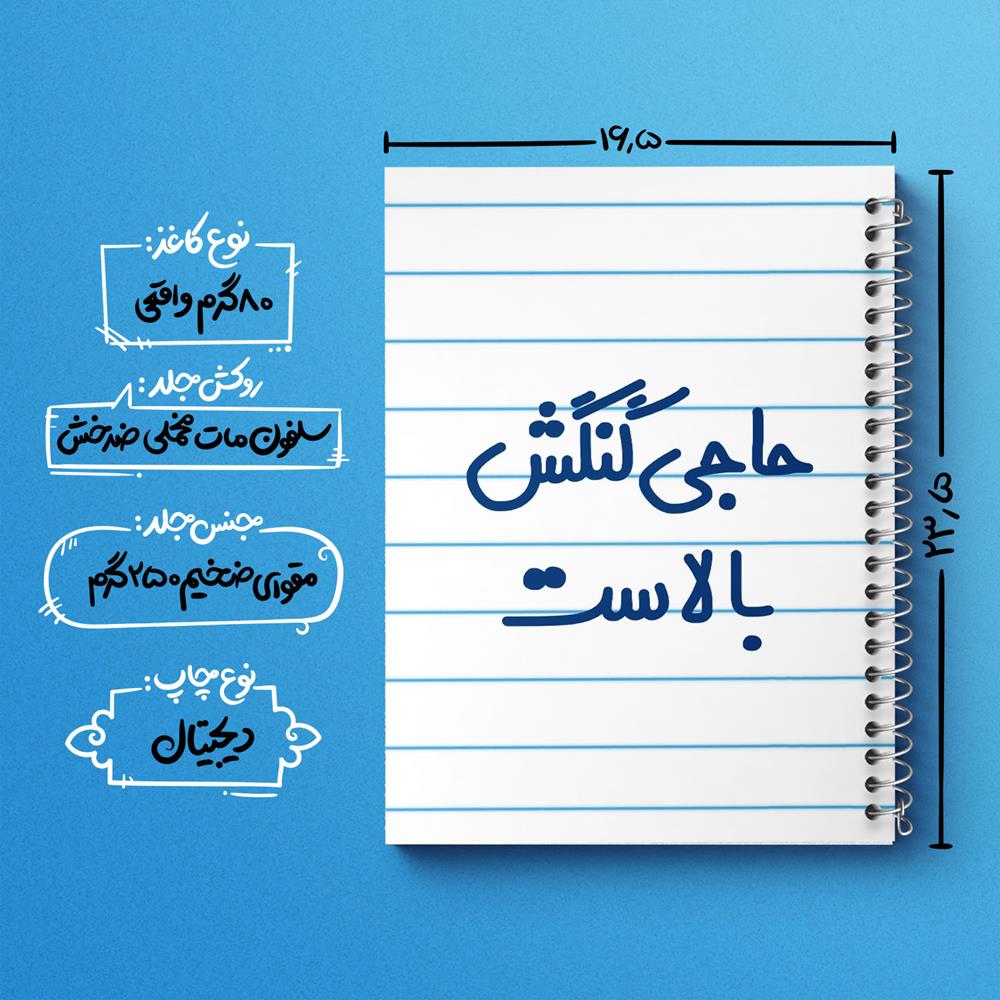 ۱۶٫۵
۲۳٫۵
حاجی گنگش
بالاست
نوع کاغذ:
۸۰ گرم واقعی
روکش جلد:
سلفون مات مخملی ضدخش
جنس جلد:
مقوای ضخیم ۲۵۰ گرم
نوع چاپ:
دیجیتال